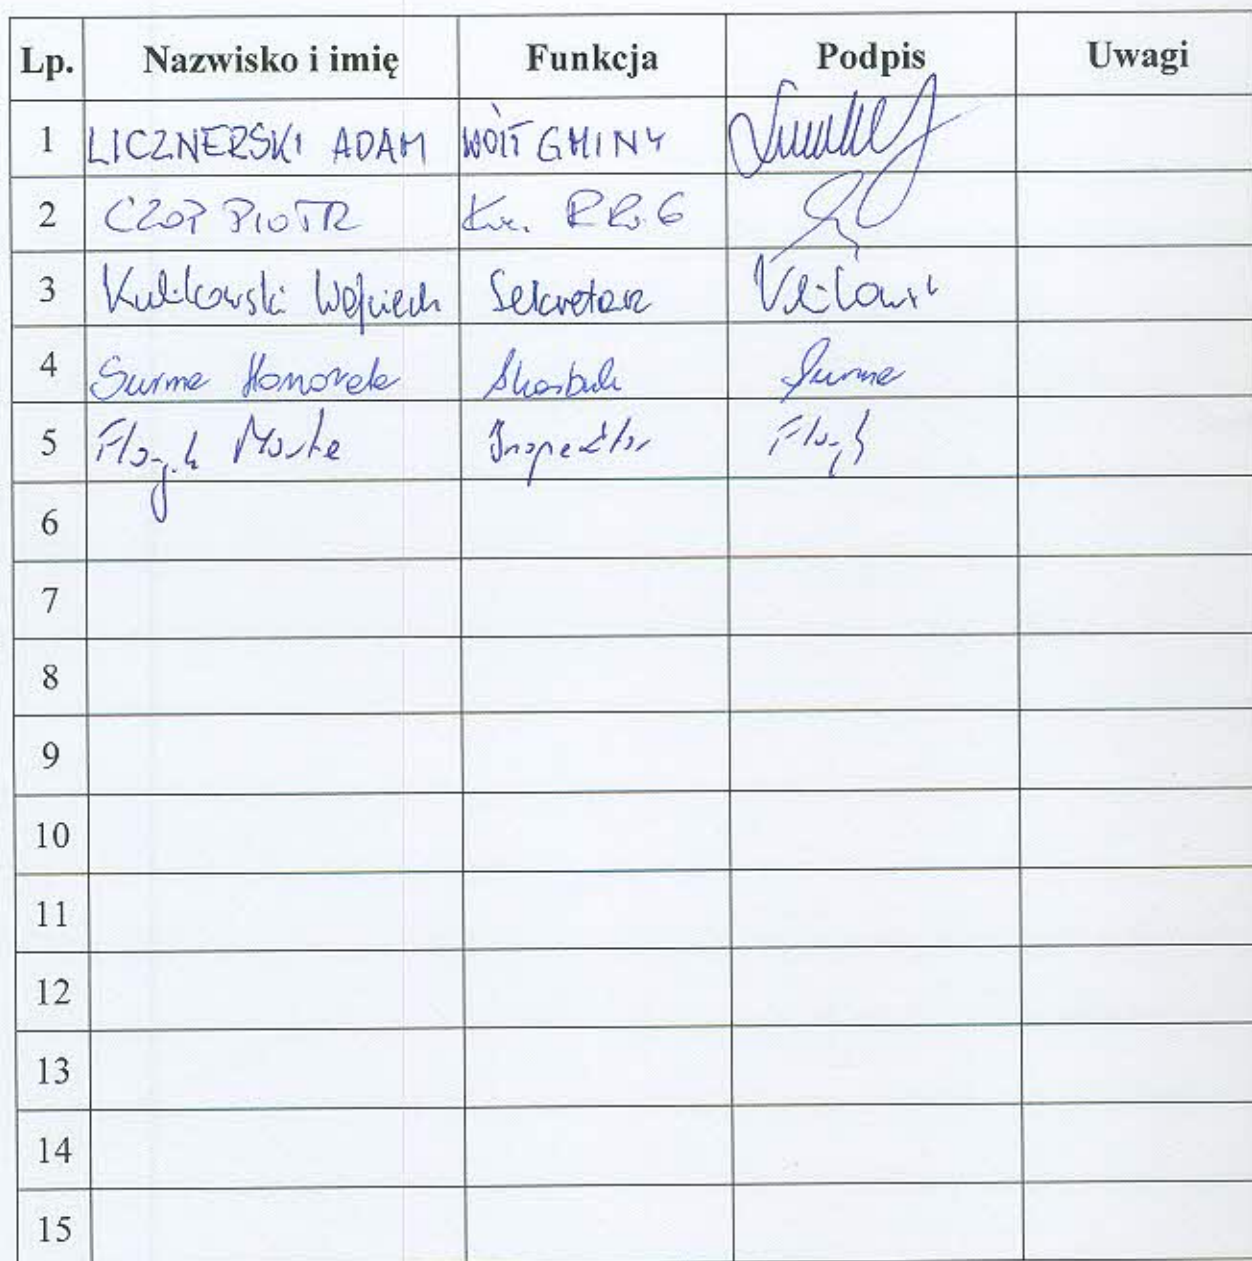 Lp. Nazwisko i imię Funkcja Podpis Uwagi
1 LICZNERSKI ADAM WÓJT GMINY
2 CZOP PIOTR
3 Kulikowski Wojciech Sekretarz
4 Surma Honorata Skarbnik Surma
5 Inspektor
6
7
8
9
10
11
12
13
14
15